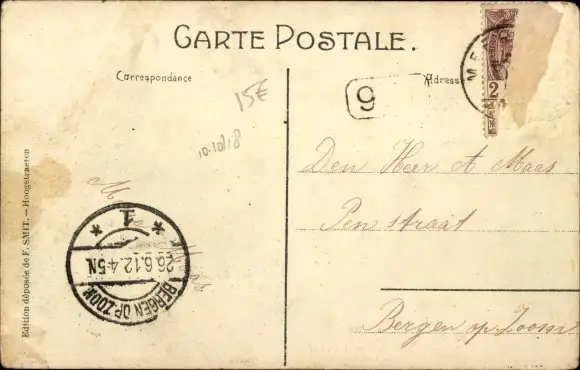 CARTE POSTALE.
Correspondance
Adresse
15€
10.10/18
9
2
Den Heer A Maas
Pen straat
Bergen op Zoom
1
26.6.12.4-5N.
BERGEN OP ZOOM
Edition déposée de F. SMIT. — Hoogstraeten